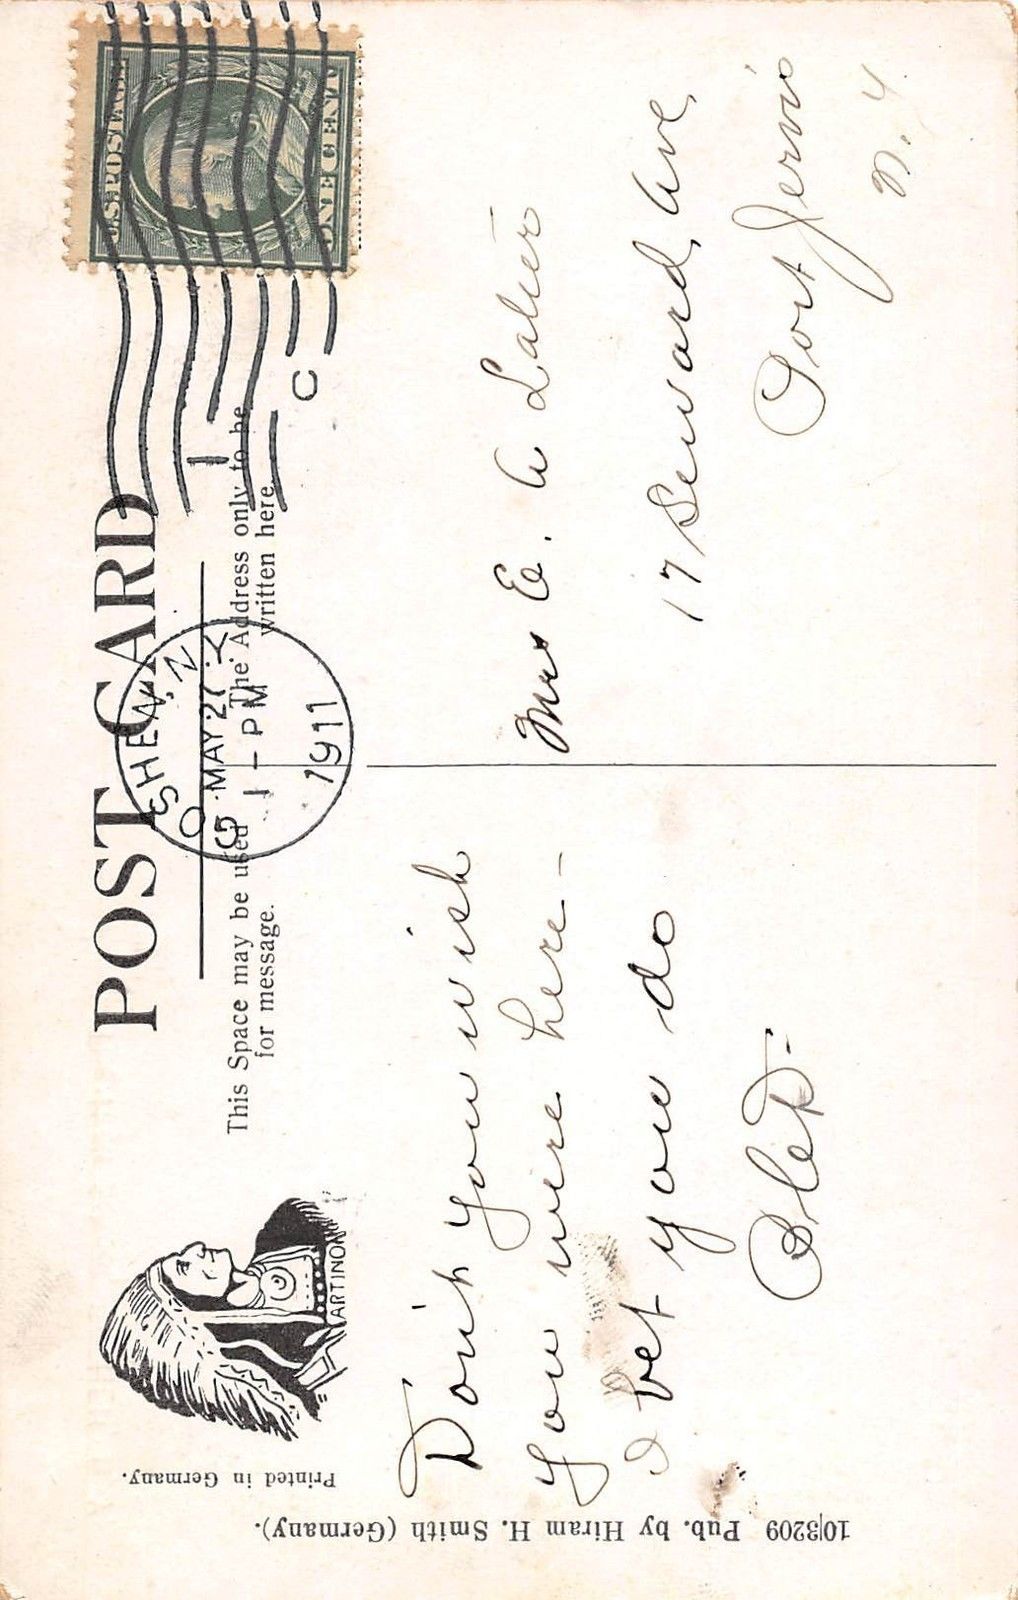 U.S. POSTAGE
ONE CENT
POST CARD
GOSHEN, N.Y.
MAY 27
1 - PM
1911
1
C
This Space may be used
for message.
The Address only to be
written here.
ARTINO
Printed in Germany.
10|3209 Pub. by Hiram H. Smith (Germany).
Don't you wish
you were here -
I bet you do
Mrs E. A
17 Seward, Ave,
Port Jervis
N. Y